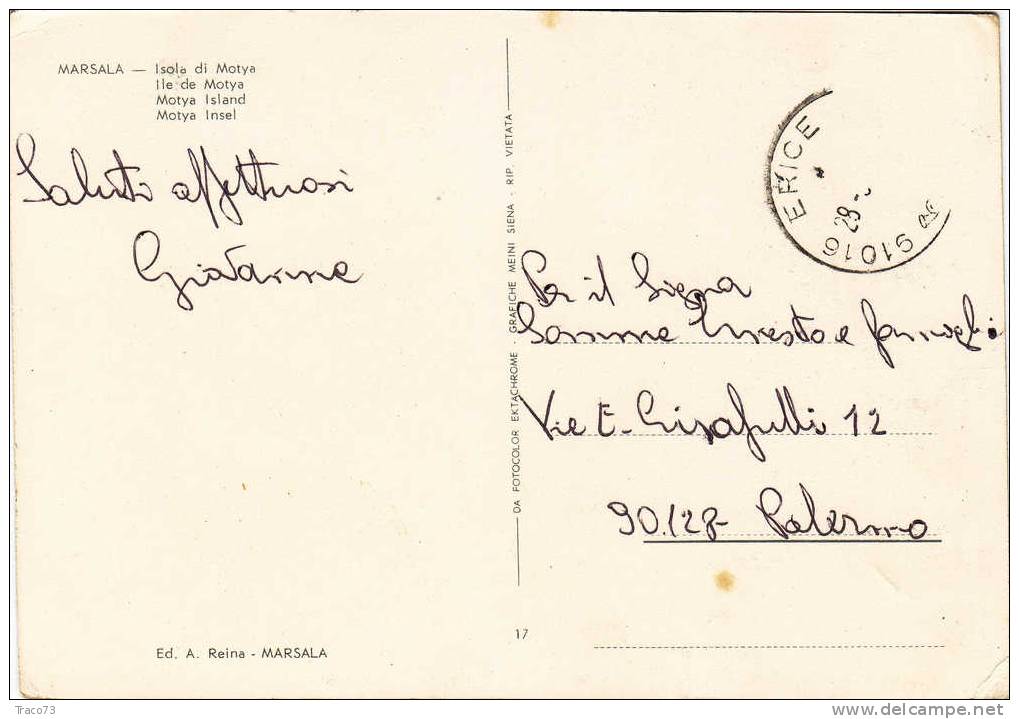 MARSALA — Isola di Motya
Ile de Motya
Motya Island
Motya Insel
Saluti affettuosi
Giovanna
DA FOTOCOLOR EKTACHROME - GRAFICHE MEINI SIENA - RIP. VIETATA
91016 ERICE
28
Per il Signor
Ernesto e famiglia
Via E. Crisafulli 12
90128 - Palermo
17
Ed. A. Reina - MARSALA
Traco73
www.delcampe.net